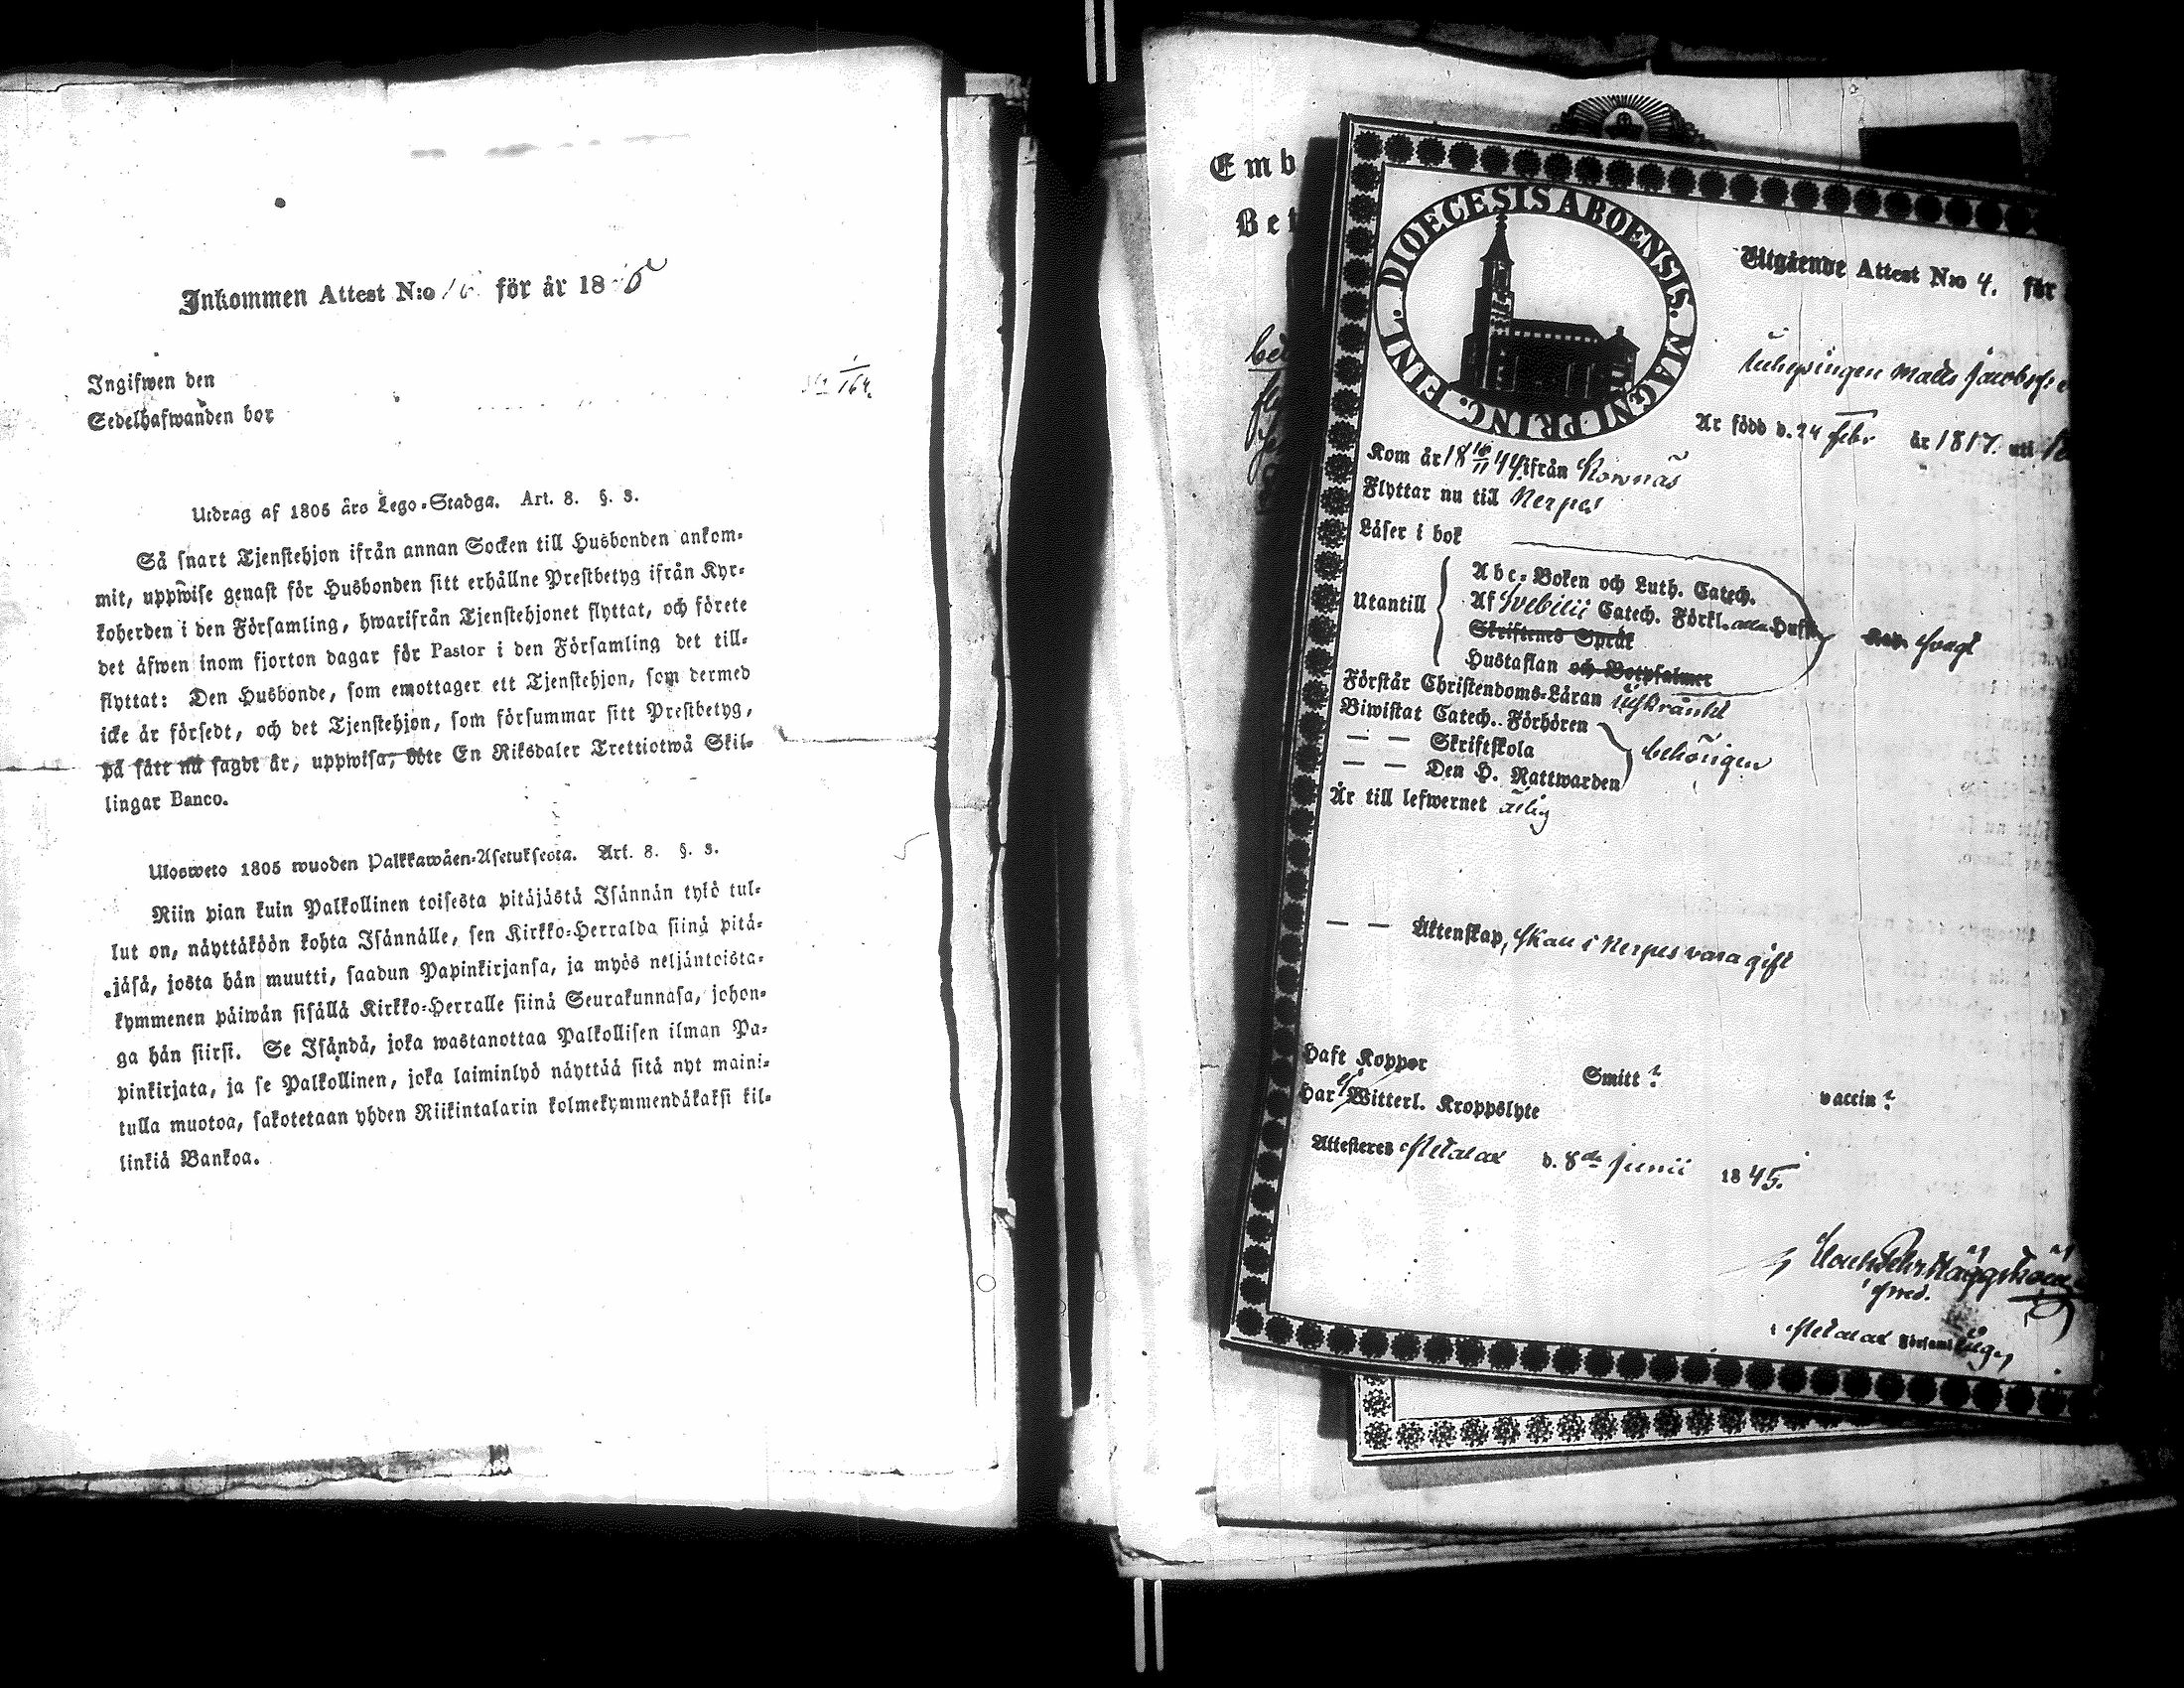 Inkommen Attest N:o för år 18
Ingifwen den
Sedelhafwanden bor
164.
Utdrag af 1805 års Lego-Stadga. Art. 8. §. 3.
Så snart Tjenstehjon ifrån annan Socken till Husbonden ankom-
mit, uppwise genast för Husbonden sitt erhållne Prestbetyg ifrån Kyr-
koherden i den Församling, hwarifrån Tjenstehjonet flyttat, och förete
det äfwen inom fjorton dagar för Pastor i den Församling det till-
flyttat: Den Husbonde, som emottager ett Tjenstehjon, som dermed
icke är försedt, och det Tjenstehjon, som försummar sitt Prestbetyg,
på sätt nu sagdt är, uppwisa, böte En Riksdaler Trettiotwå Skil-
lingar Banco.
Ulosweto 1805 wuoden Palkkawäen-Asetuksesta. Art. 8. §. 3.
Niin pian kuin Palkollinen toisesta pitäjästä Isännän tykö tul-
lut on, näyttäköön kohta Isännälle, sen Kirkko-Herralda siinä pitä-
jäsä, josta hän muutti, saadun Papinkirjansa, ja myös neljäntoista-
kymmenen päiwän sisällä Kirkko-Herralle siinä Seurakunnasa, johon-
ga hän siirsi. Se Isändä, joka wastanottaa Palkollisen ilman Pa-
pinkirjata, ja se Palkollinen, joka laiminlyö näyttää sitä nyt maini-
tulla muotoa, sakotetaan yhden Riikintalarin kolmekymmendäkaksi kil-
linkiä Bankoa.
Emb
Bet
DIOECESIS ABOENSIS. MAGNI PRINC. FINL.
Utgående Attest N:o 4. för
Ynglingen Matts Jacobss:
Är född d. 24 Febr. år 1817. uti
Kom år 18 18/11 44. ifrån Korsnäs
Flyttar nu till Nerpes
Läser i bok
Utantill
Abc-Boken och Luth. Catech.
Af Svebilii Catech. Förkl.
Skriftenes Språk
Hustaflan och Botpsalmer
svagt
Förstår Christendoms-Läran inskränkt
Biwistat Catech. Förhören
— — Skriftskola
— — Den H. Nattwarden
behörigen
Är till lefwernet ärlig
— — Äktenskap, skall i Nerpes vara gift
Haft Koppor Smitt? vaccin?
Har ej Witterl. Kroppslyte
Attesteras Petalax d. 8de Junii 1845.
Petalax Församling